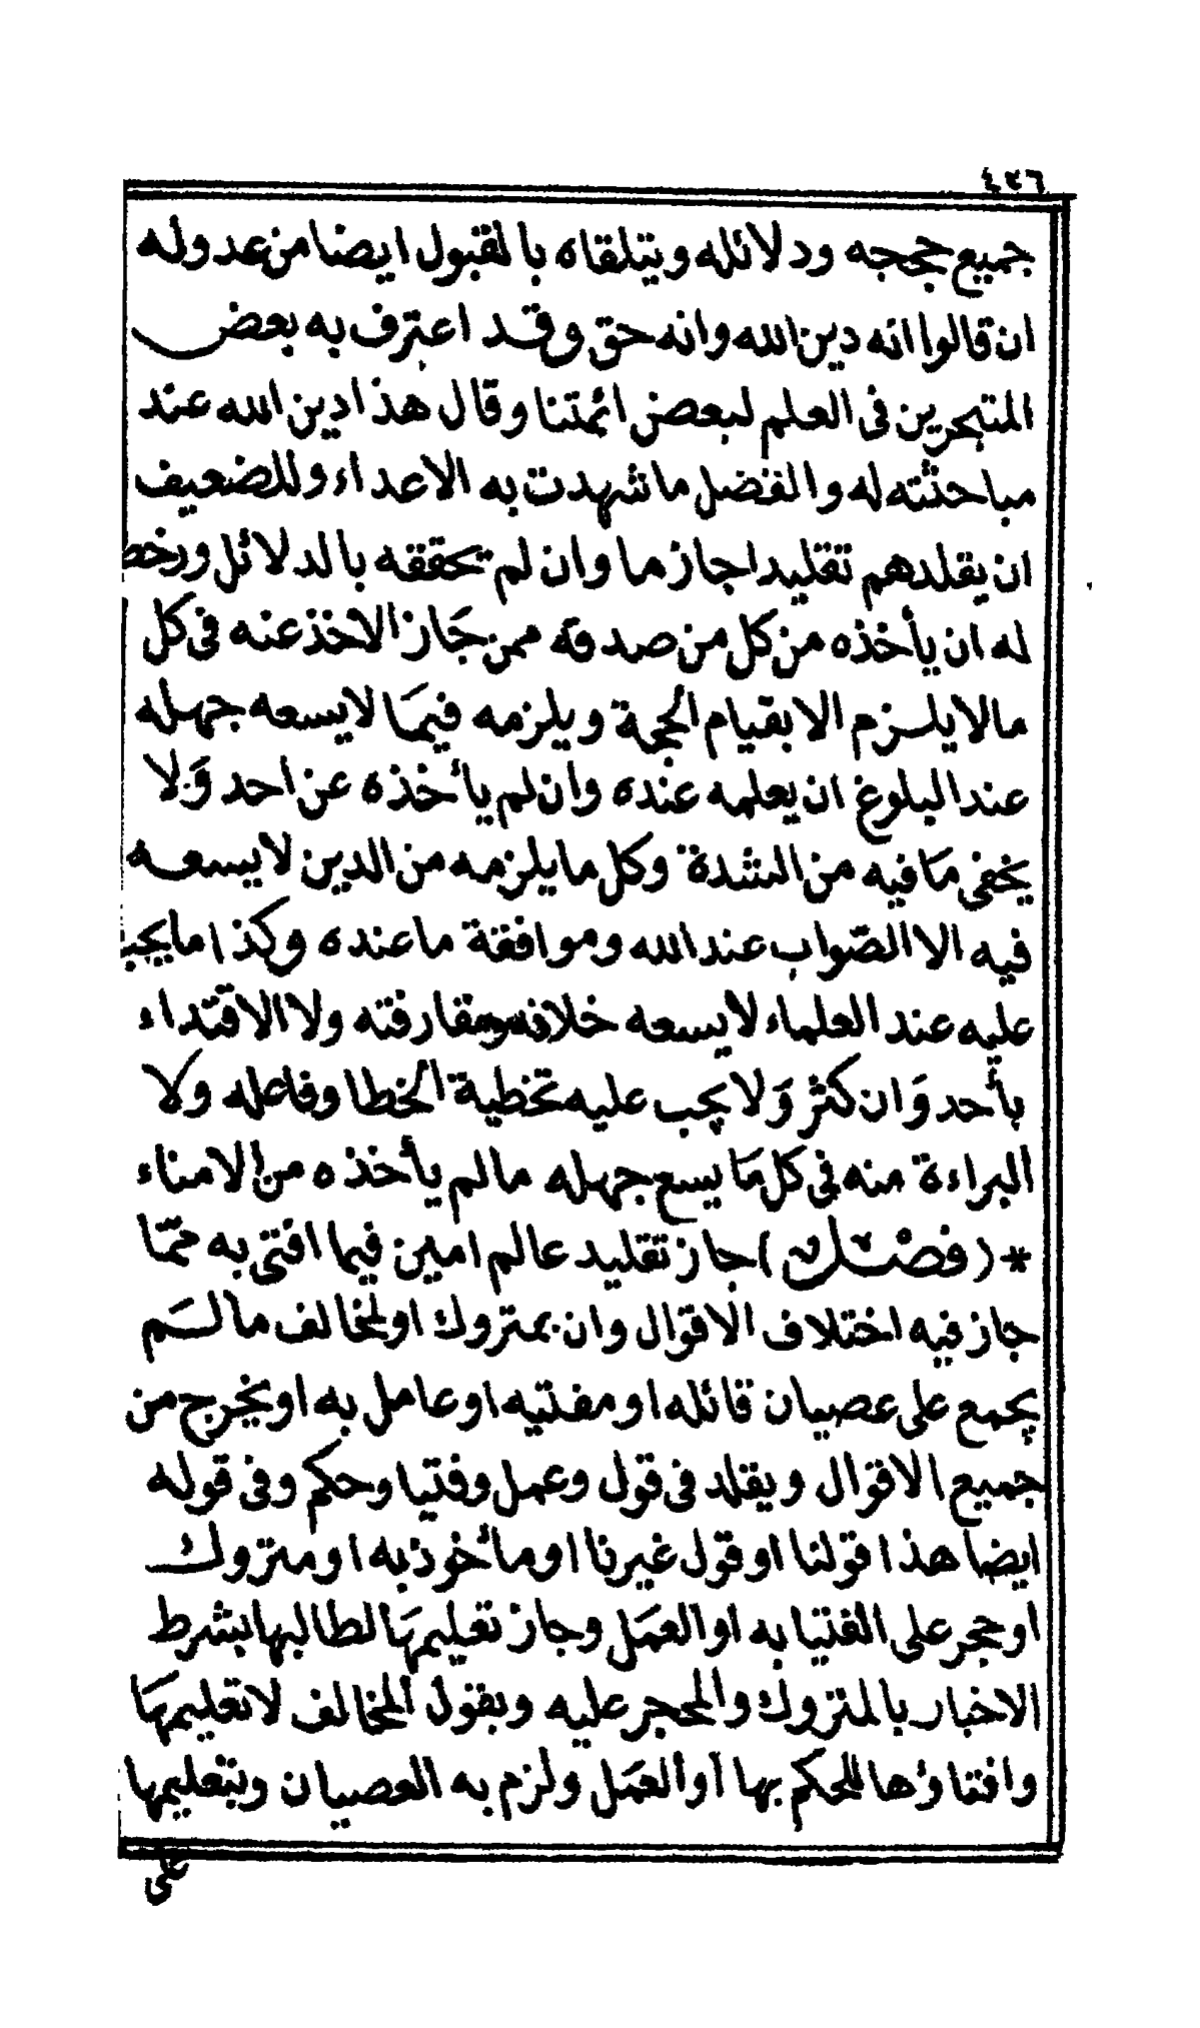 ٤٢٦
جميع حججه ودلائله ويتلقاه بالقبول ايضا من عدوله
ان قالوا انه دين الله وانه حق وقد اعترف به بعض
المتبحرين فى العلم لبعض ائمتنا وقال هذا دين الله عند
مباحثته له والفضل ما شهدت به الاعداء وللضعيف
ان يقلدهم تقليدا جازما وان لم تحققه بالدلائل ورخص
له ان يأخذه من كل من صدقه ممن جَاز الاخذ عنه فى كل
مالا يلزم الا بقيام الحجة ويلزمه فيمَا لا يسعه جهله
عند البلوغ ان يعلمه عنده وان لم يأخذه عن احد وَلا
يخفى مَا فيه من الشدة وكل ما يلزمه من الدين لا يسعه
فيه الا الصّواب عند الله وموافقة ما عنده وكذا ما يجب
عليه عند العلماء لا يسعه خلافه ومفارقته ولا الاقتداء
بأحد وَان كثر وَلا يجب عليه تخطية الخطا وفاعله ولا
البراءة منه فى كل مَا يسع جهله ما لم يأخذه من الامناء
* (فصْل) جاز تقليد عالم امين فيما افتى به ممّا
جاز فيه اختلاف الاقوال وان بمتروك او لمخالف ما لَم
يجمع على عصيان قائله او مفتيه او عامل به او يخرج من
جميع الاقوال ويقلد فى قول وعمل وفتيا وحكم وفى قوله
ايضا هذا قولنا او قول غيرنا او مأخوذ به او متروك
او حجر على الفتيا به او العمَل وجاز تعليمهَا لطالبها بشرط
الاخبار بالمتروك والمحجر عليه وبقول المخالف لا تعليمهَا
وافتاؤها للحكم بها أو العمَل ولزم به العصيان وبتعليمها
على